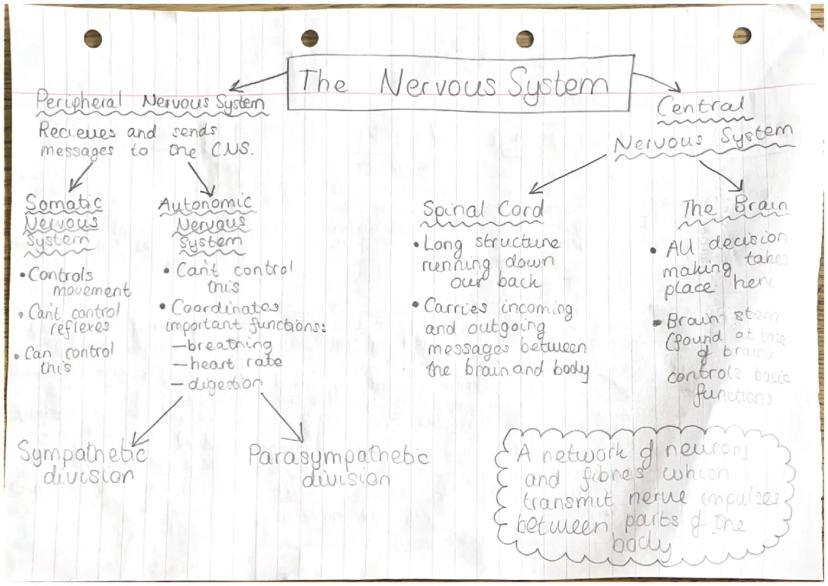 The Nervous System
Peripheral Nervous System
Recieves and sends
messages to the CNS.
Somatic
Nervous
System
• Controls
movement
• Can't control
reflexes
• Can control
this
Autonomic
Nervous
System
• Can't control
this
• Coordinates
important functions:
— breathing
— heart rate
— digestion
Sympathetic
division
Parasympathetic
division
Central
Nervous System
Spinal Cord
• Long structure
running down
our back
• Carries incoming
and outgoing
messages between
the brain and body
The Brain
• All decision
making takes
place here
• Brain stem
(found at base
of brain)
controls basic
functions
A network of neurons
and fibres which
transmit nerve impulses
between parts of the
body